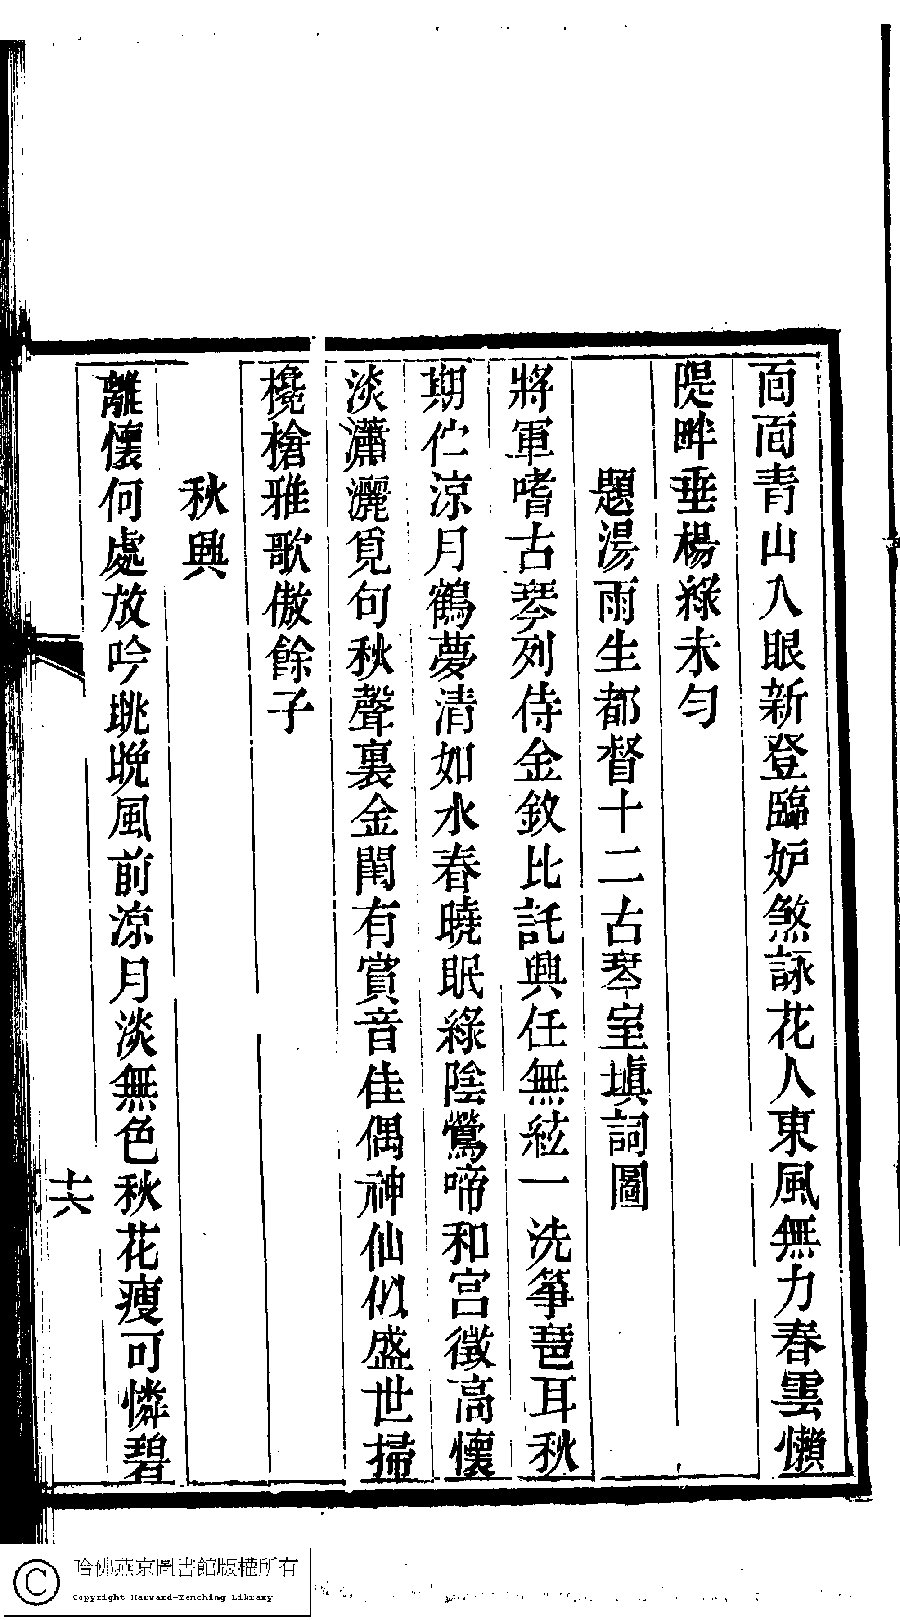 面面青山入眼新登臨妒煞詠花人東風無力春雲懶
隄畔垂楊綠未勻
題湯雨生都督十二古琴室塡詞圖
將軍嗜古琴列侍金釵比託興任無絃一洗箏琶耳秋
期伫涼月鶴夢清如水春曉眠綠陰鶯啼和宮徵高懷
淡瀟灑覓句秋聲裏金閨有賞音佳偶神仙似盛世掃
欃槍雅歌傲餘子
秋興
離懷何處放吟眺晚風前涼月淡無色秋花瘦可憐碧
十六
哈佛燕京圖書館版權所有
Copyright Harvard-Yenching Library